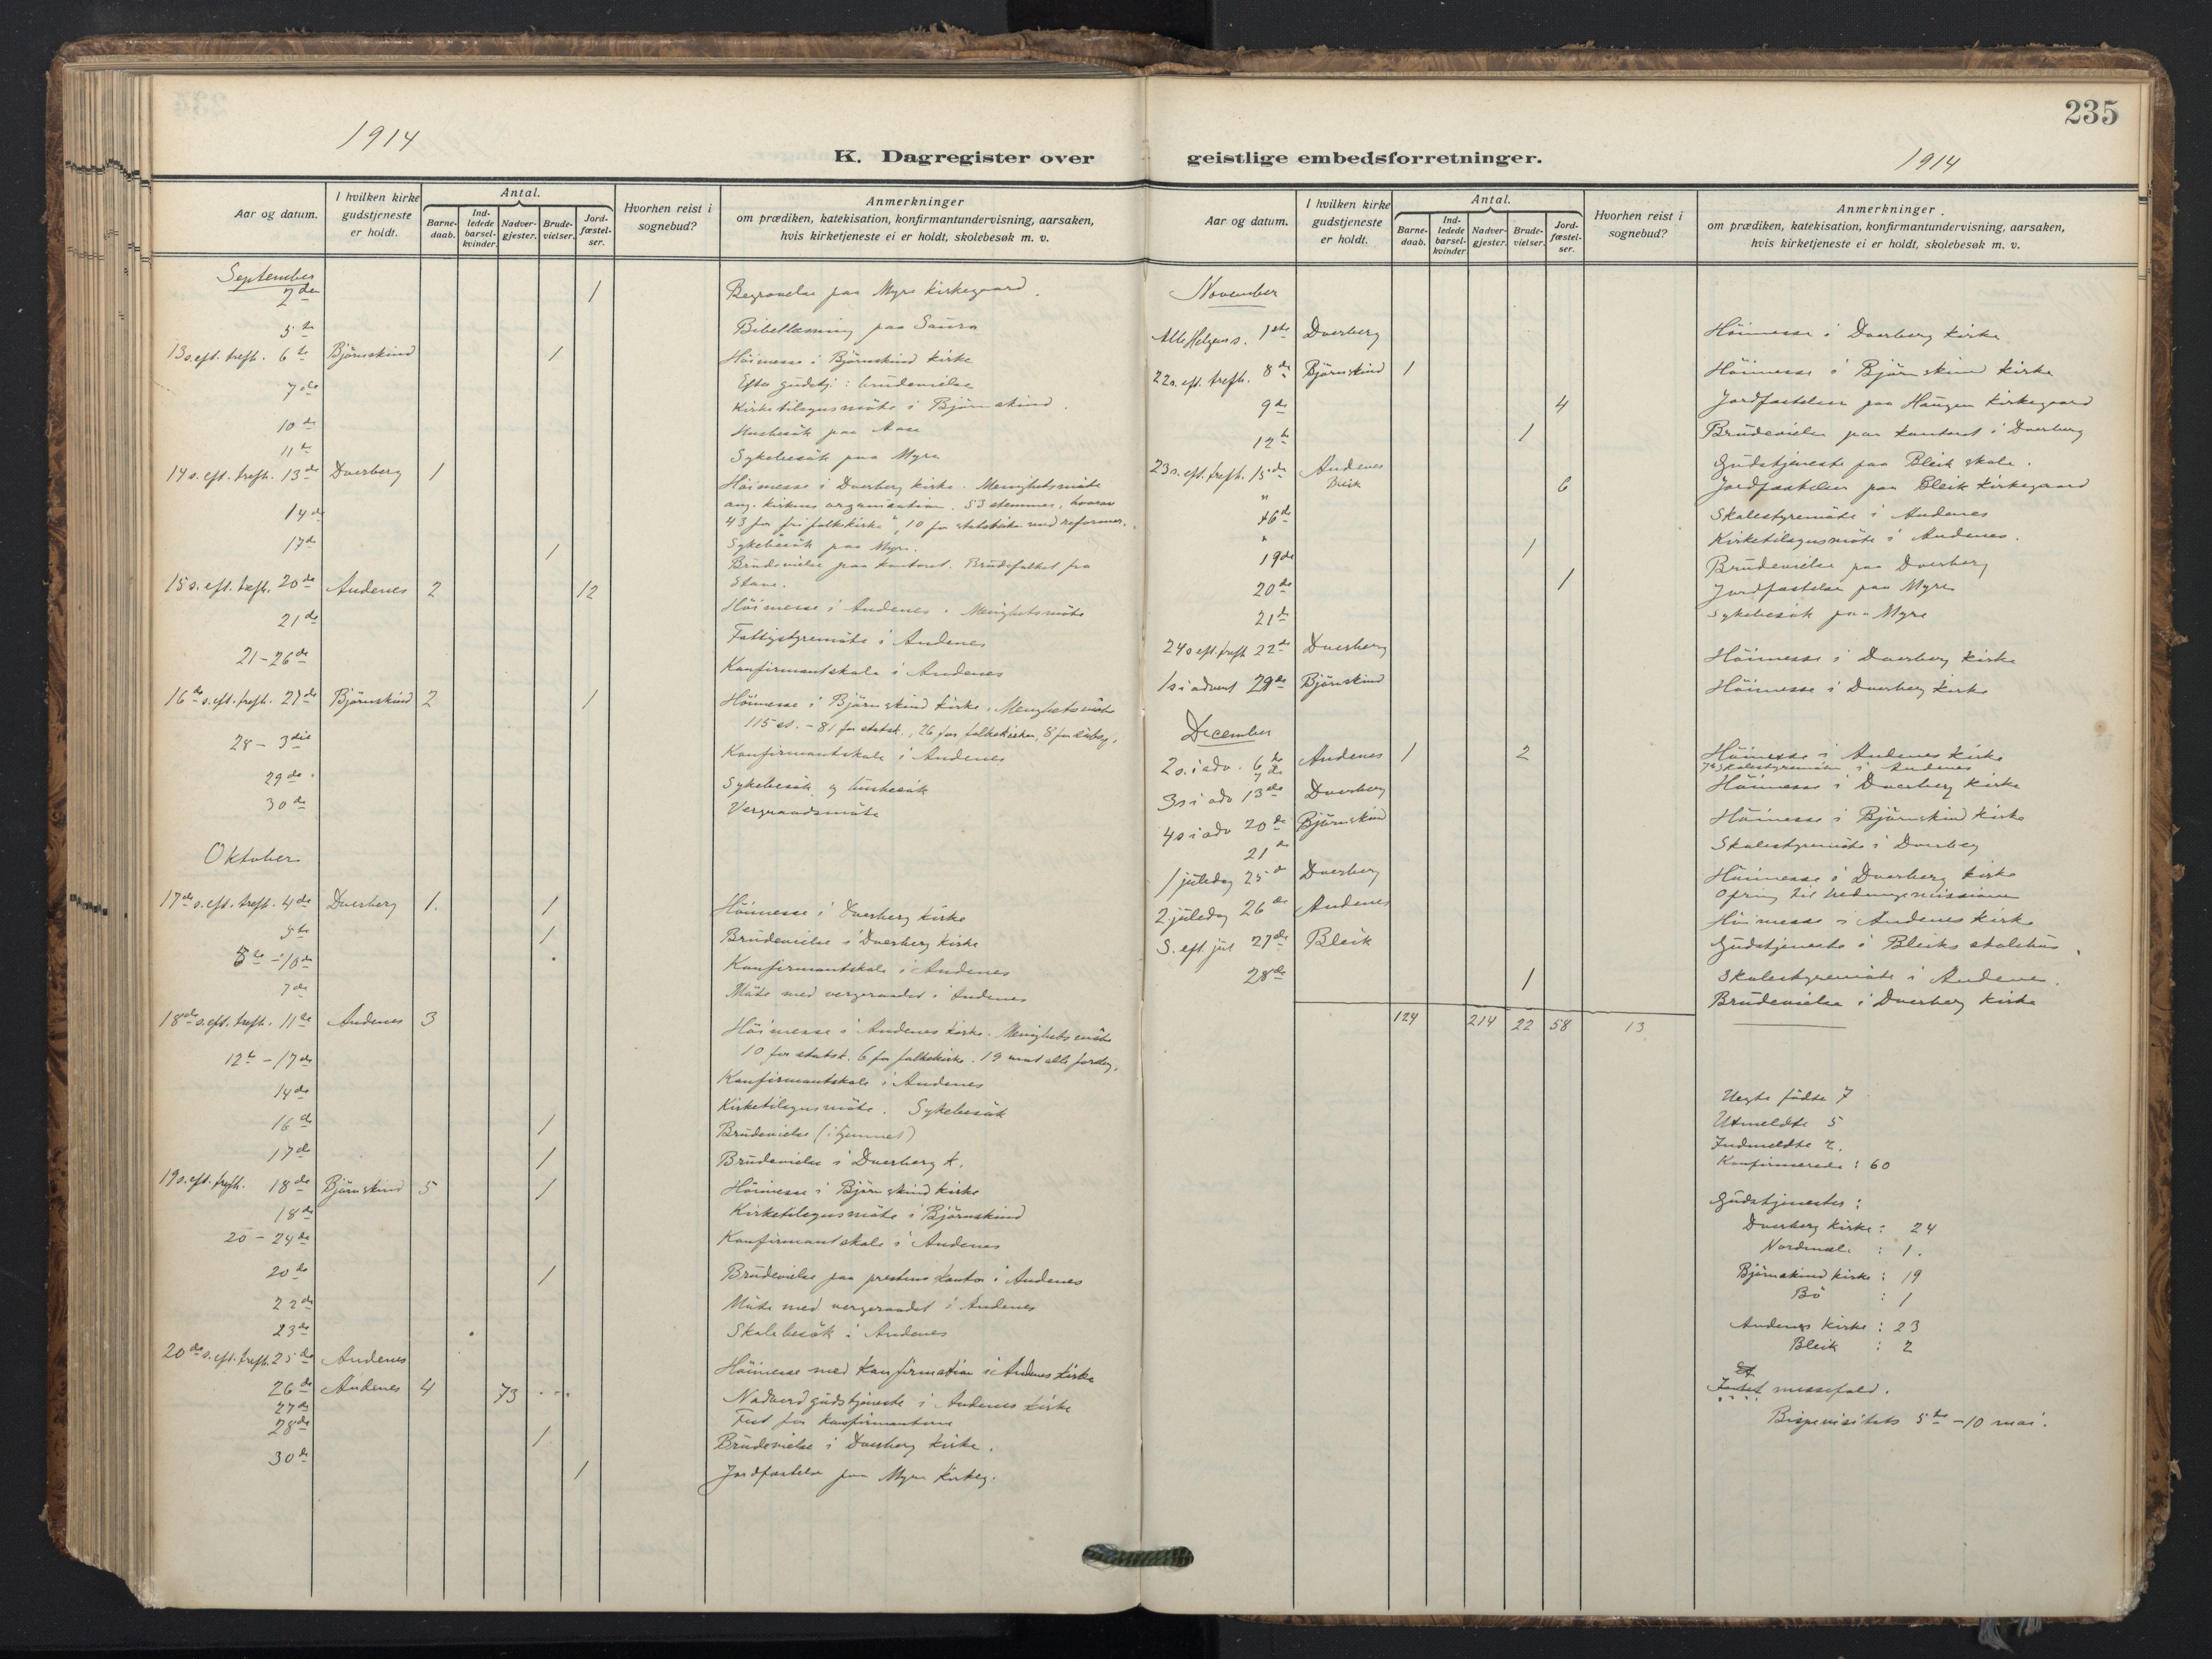 1914
K. Dagregister over
Aar og datum.
I hvilken kirke gudstjeneste er holdt.
Antal.
Barnedaab.
Indledede barselkvinder.
Nadvergjester.
Brudevielser.
Jordfæstelser.
Hvorhen reist i sognebud?
Anmerkninger
om prædiken, katekisation, konfirmantundervisning, aarsaken,
hvis kirketjeneste ei er holdt, skolebesøk m. v.
September
2den 1 Begravelse paa Myre Kirkegaard.
5te Bibellæsning paa Saura
13 s. eft. trefh. 6te Björnskind 1 Höimesse i Björnskind kirke
Efter gudstj: brudevielse
7de Kirketilsynsmöte i Björnskind.
10de Husbesök paa Aase
11te Sykebesök paa Myre
14 s. eft. trefh. 13de Dverberg 1 Höimesse i Dverberg kirke. Menighetsmöte
ang. kirkens organisation. 53 stemmer, hvorav
43 for fri folkekirke, 10 for statskirke med reformer.
14de Sykebesök paa Myre.
17de 1 Brudevielse paa kontoret. Brudefolket fra
Stave.
15 s. eft. trefh. 20de Andenes 2 12 Höimesse i Andenes. Menighetsmöte
21de Fattigstyremöte i Andenes
21-26de Konfirmantskole i Andenes
16de s. eft. trefh. 27de Björnskind 2 1 Höimesse i Björnskind kirke. Menighetsmöte
115 st. - 81 for statsk., 26 for folkekirken, 8
28 - 3die Konfirmantskole i Andenes
29de Sykebesök og husbesök
30de Vergeraadsmöte
Oktober
17de s. eft. trefh. 4de Dverberg 1. 1 Höimesse i Dverberg kirke
5te 1 Brudevielse i Dverberg kirke
5te - 10de Konfirmantskole i Andenes
7de Möte med vergeraadet i Andenes
18de s. eft. trefh. 11te Andenes 3 Höimesse i Andenes kirke. Menighetsmöte
10 for statsk. 6 for folkekirke. 19 mot alle forslag.
12te - 17de Konfirmantskole i Andenes
14de Kirketilsynsmöte. Sykebesök
16de 1 Brudevielse (i hjemmet)
17de 1 Brudevielse i Dverberg k.
19 s. eft. trefh. 18de Björnskind 5 1 Höimesse i Björnskind kirke
18de Kirketilsynsmöte i Björnskind
20 - 24de Konfirmantskole i Andenes
20de 1 Brudevielse paa prestens kontor i Andenes
22de Möte med vergeraadet i Andenes
23de Skolebesök i Andenes
20de s. eft. trefh. 25de Andenes Höimesse med konfirmation i Andenes kirke
26de Andenes 4 73 Nadverdgudstjeneste i Andenes kirke
27de Fest for konfirmanterne
28de 1 Brudevielse i Dverberg kirke.
30de 1 Jordfæstelse paa Myre kirkeg.
235
geistlige embedsforretninger.
1914
Aar og datum.
I hvilken kirke gudstjeneste er holdt.
Antal.
Barnedaab.
Indledede barselkvinder.
Nadvergjester.
Brudevielser.
Jordfæstelser.
Hvorhen reist i sognebud?
Anmerkninger.
om prædiken, katekisation, konfirmantundervisning, aarsaken,
hvis kirketjeneste ei er holdt, skolebesøk m. v.
November
Alle Helgens s. 1ste Dverberg Höimesse i Dverberg kirke
22 s. eft. trefh. 8de Björnskind 1 Höimesse i Björnskind kirke
9de 4 Jordfæstelser paa Haugen kirkegaard
12te 1 Brudevielse paa kontoret i Dverberg
23 s. eft. trefh. 15de Andenes Gudstjeneste paa Bleik skole.
" Bleik 6 Jordfæstelser paa Bleik kirkegaard
16de Skolestyremöte i Andenes
" Kirketilsynsmöte i Andenes.
19de 1 Brudevielse paa Dverberg
20de 1 Jordfæstelse paa Myre
21de Sykebesök paa Myre
24 s. eft. trefh. 22de Dverberg Höimesse i Dverberg kirke
1 s i advent 29de Björnskind Höimesse i Dverberg kirke
December
2 s. i adv. 6te Andenes 1 2 Höimesse i Andenes kirke
7de Skolestyremöte i Andenes
3 s i adv 13de Dverberg Höimesse i Dverberg kirke
4 s i adv 20de Björnskind Höimesse i Björnskind kirke
21de Skolestyremöte i Dverberg
1 juledag 25de Dverberg Höimesse i Dverberg kirke
Ofring til hedningemissionen
2 juledag 26de Andenes Höimesse i Andenes kirke
S. eft jul 27de Bleik Gudstjeneste i Bleiks skolehus.
28de Skolestyremöte i Andenes.
1 Brudevielse i Dverberg kirke
124 214 22 58 13
Uegte födte 7
Utmeldte 5
Indmeldte 2.
Konfirmerede: 60
Gudstjenester:
Dverberg kirke: 24
Nordmele: 1.
Björnskind kirke: 19
Bö: 1
Andenes kirke: 23
Bleik: 2
Et
Intet messefald.
Bispevisitats 5te - 10 mai.